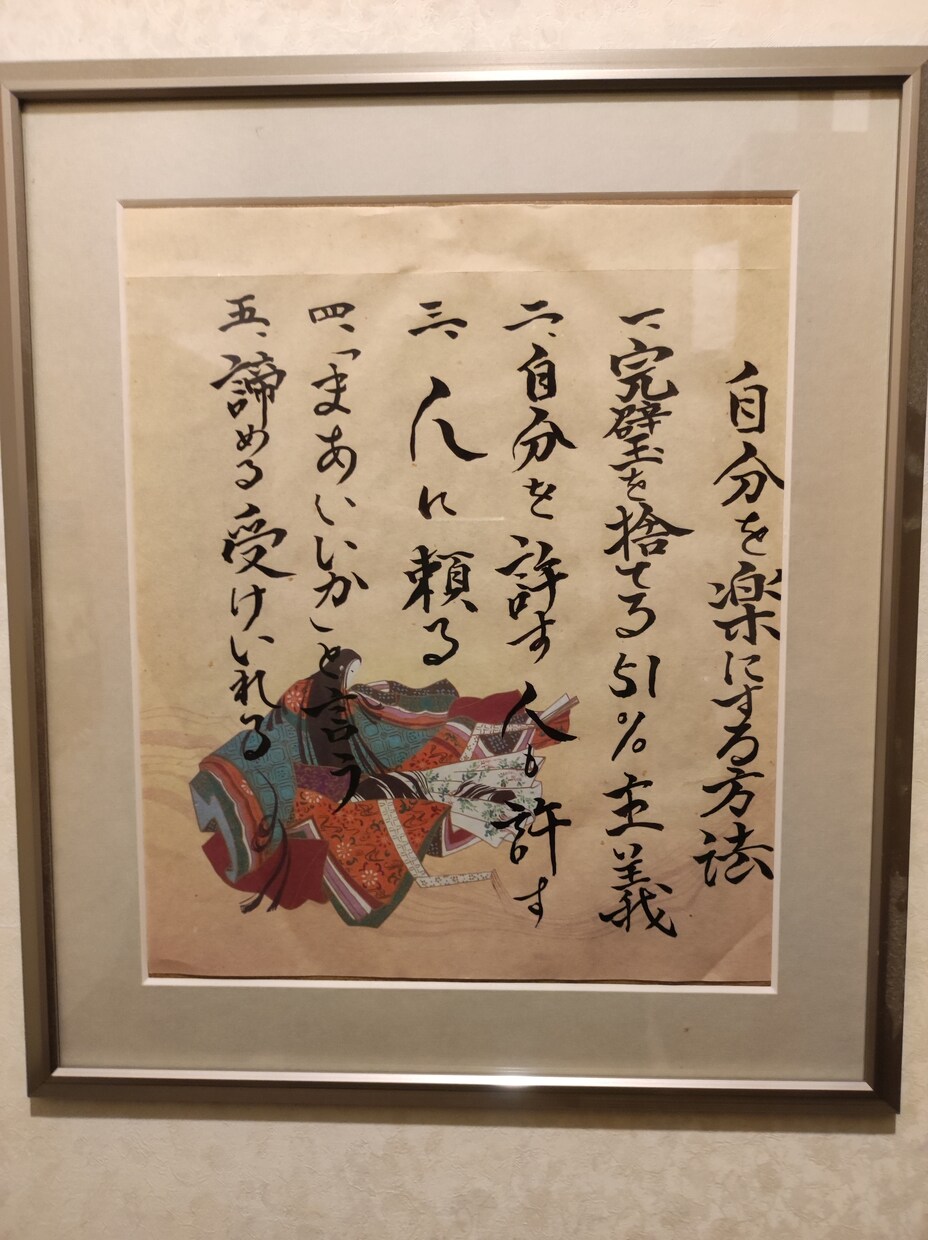 自分を楽にする方法
一、完璧を捨てる 51%主義
二、自分を許す 人も許す
三、人に頼る
四、「まあいいか」と言う
五、諦める 受けいれる